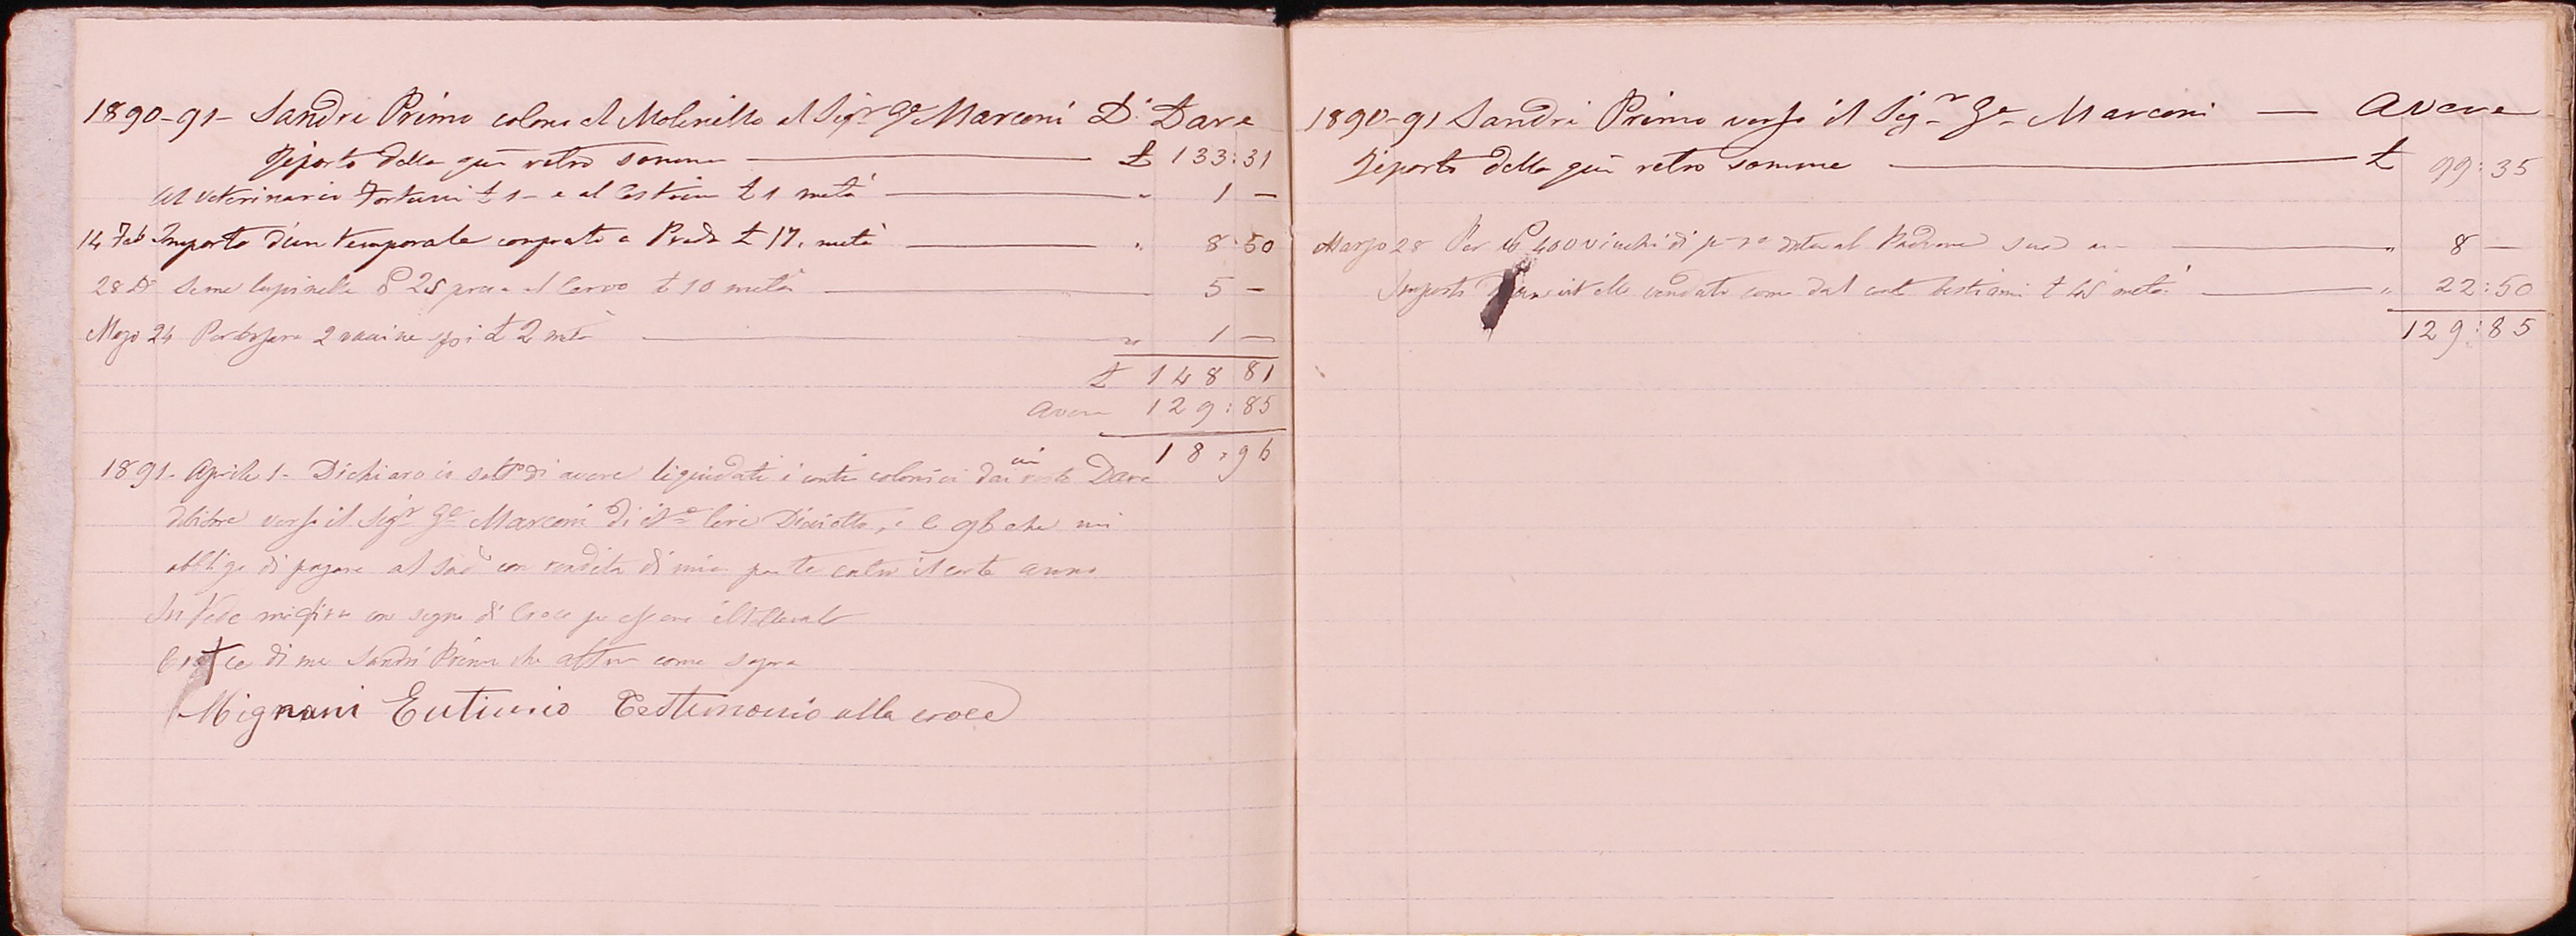 1890-91- Sandri Primo colono al Molinello al Sigr Ge Marconi D. Dare
Riporto della qui retro somma £ 133:31
Al veterinario Fortuni £ 1- e al Castrin £ 1 metà " 1 -
14 Feb Importo d'un temporale comprato a Prada £ 17. metà " 8:50
28 Do Seme lupinella 25 presa al Cervo £ 10 metà 5 -
Mazo 24 Per 2 vaccine £ 2 metà " 1 -
£ 148 81
Avere 129:85
18,96
1891- Aprile 1- Dichiaro io sottto di avere liquidati i conti colonici dai cui resto Dare
debitore verso il Sigr Ge Marconi di it.e lire Diciotto, e C 96 che mi
obbligo di pagare al Sud.o con rendita di mia parte entro il corte anno
In Fede mi firmo con segno di Croce per essere illetterato
Cro+ce di me Sandri Primo che affermo come sopra
Mignani Eutimio Testimonio alla croce
1890-91 Sandri Primo verso il Sigr Ge Marconi — Avere
Riporto della qui retro somma £ 99:35
Marzo 28 Per 400 vinchi di dati al Padrone " 8 -
Importo vitello venduto come dal conto bestiami £ 45 metà " 22:50
129:85